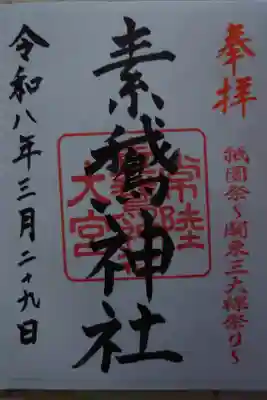 奉拝
祇園祭〜関東三大祇園祭り〜
素鵞神社
常陸
大宮
令和八年三月二十九日